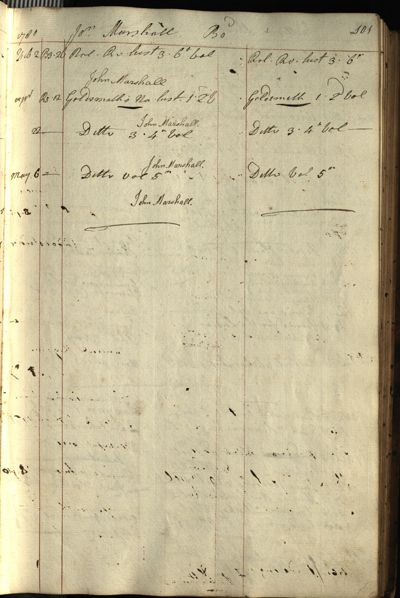 1781 Jon. Marshall Bd 101
Feb 2 B3.26 Rol. Ro hist 3. 6th vol Rol. Ro. hist 3. 6th
John Marshall
Goldsmith's Na hist 1. 2d Goldsmith 1. 2d vol
John Marshall.
22 Ditto 3. 4th vol Ditto 3. 4th vol
John Marshall.
May 6 Ditto vol 5th Ditto Vol 5th
John Marshall.